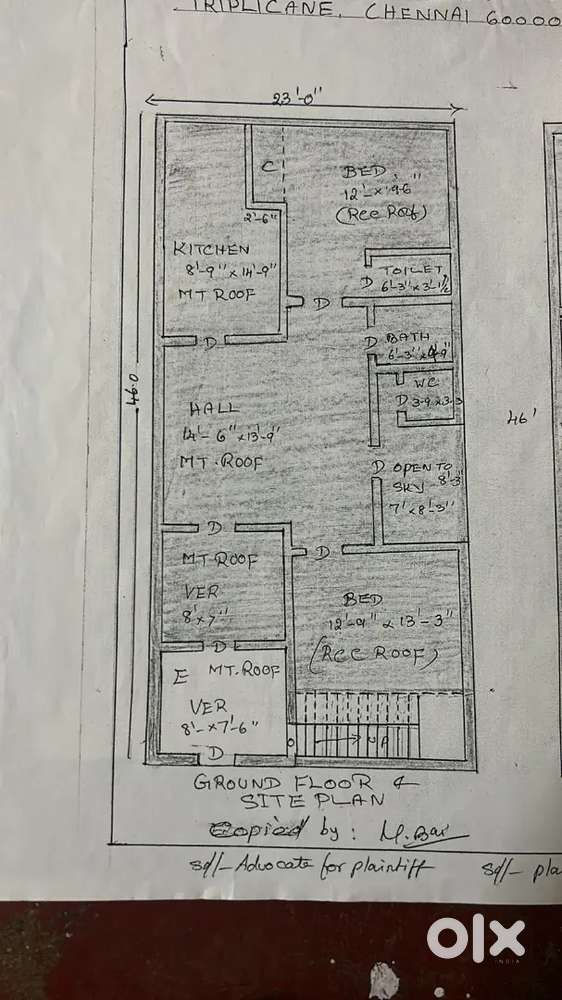 TRIPLICANE, CHENNAI 60000
23'-0"
C
BED
12'-x'9-6"
(RCC Roof)
2'-6"
KITCHEN
8'-9" x 14'-9"
MT ROOF
D
TOILET
6'-3" x 3'-1½
D
D
D
BATH
6'-3" x 4'-9"
WC
D 3-9 x 3-3
46.0
46'
HALL
14'-6" x 13'-9"
MT.ROOF
D
OPEN TO
SKY 8'-3"
7' x 8'-3"
D
D
MT ROOF
VER
8' x 7'
BED
12'-9" x 13'-3"
(RCC ROOF)
D
E MT.ROOF
VER
8'- x 7'-6"
D
D
UP
GROUND FLOOR &
SITE PLAN
Copied by: M.Bai
sd/- Advocate for plaintiff
sd/- pla
olx
INDIA